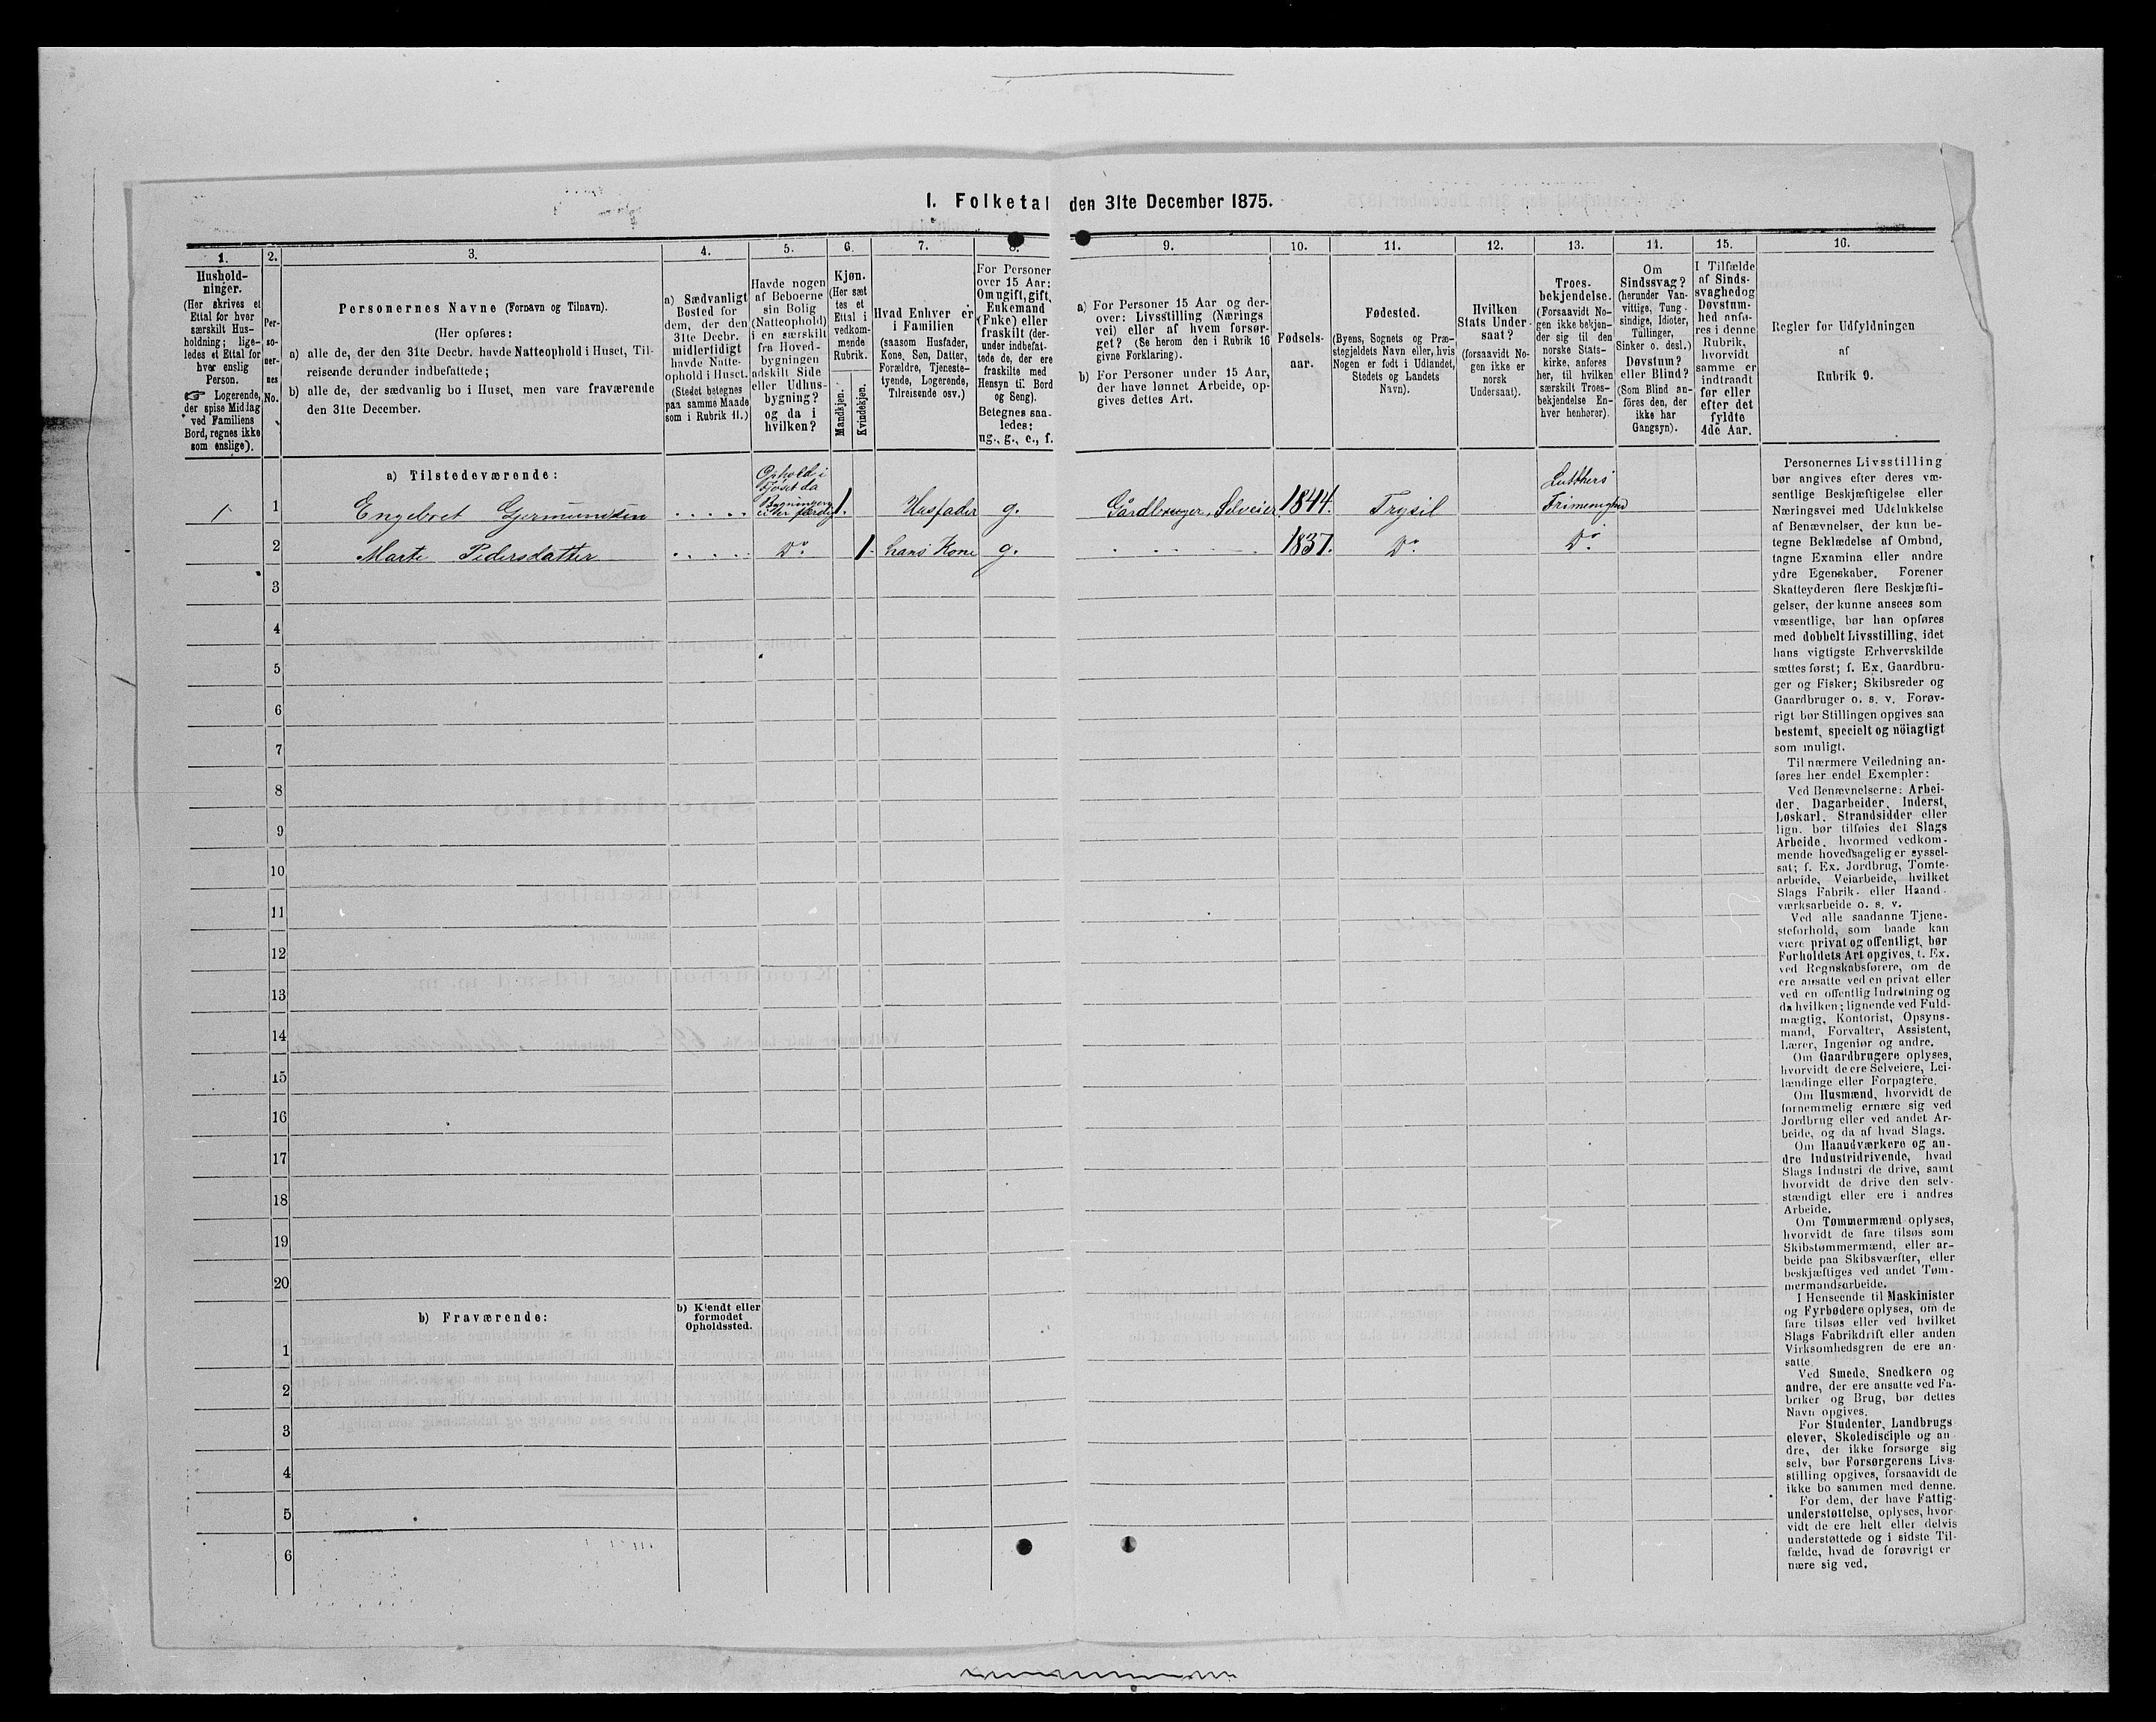 I. Folketal den 31te December 1875.
1.
2.
3.
4.
5.
6.
7.
8.
9.
10.
11.
12.
13.
14.
15.
16.
Hushold-
ninger.
(Her skrives et
Ettal for hver
særskilt Hus-
holdning; lige-
ledes et Ettal for
hver enslig
Person.
☞ Logerende,
der spise Middag
ved Familiens
Bord, regnes ikke
som enslige).
Per-
so-
ner-
nes
No.
Personernes Navne (Fornavn og Tilnavn).
(Her opføres:
a) alle de, der den 31te Decbr. havde Natteophold i Huset, Til-
reisende derunder indbefattede;
b) alle de, der sædvanlig bo i Huset, men vare fraværende
den 31te December.
a) Sædvanligt
Bosted for
dem, der den
31te Decbr.
midlertidigt
havde Natte-
ophold i Huset.
(Stedet betegnes
paa samme Maade
som i Rubrik 11.)
Havde nogen
af Beboerne
sin Bolig
(Natteophold)
i en særskilt
fra Hoved-
bygningen
adskilt Side
eller Udhus-
bygning?
og da i
hvilken?
Kjøn.
(Her sæt
tes et
Ettal i
vedkom-
mende
Rubrik.
Mandkjøn.
Kvindekjøn.
Hvad Enhver er
i Familien
(saasom Husfader,
Kone, Søn, Datter,
Forældre, Tjeneste-
tyende, Logerende,
Tilreisende osv.)
For Personer
over 15 Aar:
Om ugift, gift,
Enkemand
(Enke) eller
fraskilt (der-
under indbefat-
tede de, der ere
fraskilte med
Hensyn til Bord
og Seng).
Betegnes saa-
ledes:
ug., g., e., f.
a) For Personer 15 Aar og der-
over: Livsstilling (Nærings
vei) eller af hvem forsør-
get? (Se herom den i Rubrik 16
givne Forklaring).
b) For Personer under 15 Aar,
der have lønnet Arbeide, op-
gives dettes Art.
Fødsels-
aar.
Fødested.
(Byens, Sognets og Præ-
stegjeldets Navn eller, hvis
Nogen er født i Udlandet,
Stedets og Landets
Navn).
Hvilken
Stats Under-
saat?
(forsaavidt No-
gen ikke er
norsk
Undersaat).
Troes-
bekjendelse.
(Forsaavidt No-
gen ikke bekjen-
der sig til den
norske Stats-
kirke, anføres
her, til hvilken
særskilt Troes-
bekjendelse En-
hver henhører).
Om
Sindssvag?
(herunder Van-
vittige, Tung-
sindige, Idioter,
Tullinger,
Sinker o. desl.)
Døvstum?
eller Blind?
(Som Blind an-
føres den, der
ikke har
Gangsyn).
I Tilfælde
af Sinds-
svaghed og
Døvstum-
hed anfø-
res i denne
Rubrik,
hvorvidt
samme er
indtraadt
før eller
efter det
fyldte
4de Aar.
Regler for Udfyldningen
af
Rubrik 9.
a) Tilstedeværende:
Ophold i
Føset da
Bygningen
ei er færdig
Lutthers
1 1 Engebret Gjermundsen 1. Husfader g. Gårdbruger, Selveier 1844. Trysil Frimenighed
2 Marte Pedersdatter Do. 1. hans Kone g. 1837. Do Do.
3
4
5
6
7
8
9
10
11
12
13
14
15
16
17
18
19
20
b) Fraværende:
b) Kjendt eller
formodet
Opholdssted.
1
2
3
4
5
6
Personernes Livsstilling
bør angives efter deres væ-
sentlige Beskjæftigelse eller
Næringsvei med Udelukkelse
af Benævnelser, der kun be-
tegne Beklædelse af Ombud,
tagne Examina eller andre
ydre Egenskaber. Forener
Skatteyderen flere Beskjæfti-
gelser, der kunne ansees som
væsentlige, bør han opføres
med dobbelt Livsstilling, idet
hans vigtigste Erhvervskilde
sættes først; f. Ex. Gaardbru-
ger og Fisker; Skibsreder og
Gaardbruger o. s. v. Forøv-
rigt bør Stillingen opgives saa
bestemt, specielt og nöiagtigt
som muligt.
Til nærmere Veiledning an-
føres her endel Exempler:
Ved Benævnelserne: Arbei-
der, Dagarbeider, Inderst,
Løskarl, Strandsidder eller
lign. bør tilføies det Slags
Arbeide, hvormed vedkom-
mende hovedsagelig er syssel-
sat; f. Ex. Jordbrug, Tomte-
arbeide, Veiarbeide, hvilket
Slags Fabrik- eller Haand-
værksarbeide o. s. v.
Ved alle saadanne Tjene-
steforhold, som baade kan
være privat og offentligt, bør
Forholdets Art opgives, f. Ex.
ved Regnskabsførere, om de
ere ansatte ved en privat eller
ved en offentlig Indretning og
da hvilken; lignende ved Fuld-
mægtig, Kontorist, Opsyns-
mand, Forvalter, Assistent,
Lærer, Ingeniør og andre.
Om Gaardbrugere oplyses,
hvorvidt de ere Selveiere, Lei-
lændinge eller Forpagtere.
Om Husmænd, hvorvidt de
fornemmelig ernære sig ved
Jordbrug eller ved andet Ar-
beide, og da af hvad Slags.
Om Haandværkere og an-
dre Industridrivende, hvad
Slags Industri de drive, samt
hvorvidt de drive den selv-
stændigt eller ere i andres
Arbeide.
Om Tømmermænd oplyses,
hvorvidt de fare tilsøs som
Skibstømmermænd, eller ar-
beide paa Skibsværfter, eller
beskjæftiges ved andet Tøm-
mermandsarbeide.
I Henseende til Maskinister
og Fyrbødere oplyses, om de
fare tilsøs eller ved hvilket
Slags Fabrikdrift eller anden
Virksomhedsgren de ere an-
satte
Ved Smede, Snedkere og
andre, der ere ansatte ved Fa-
briker og Brug, bør dettes
Navn opgives.
For Studenter, Landbrugs
elever, Skoledisciple og an
dre, der ikke forsørge sig
selv, bør Forsørgerens Livs-
stilling opgives, forsaavidt de
ikke bo sammen med denne.
For dem, der have Fattig-
understøttelse, oplyses, hvor-
vidt de ere helt eller delvis
understøttede og i sidste Til-
fælde, hvad de forøvrigt er
nære sig ved.